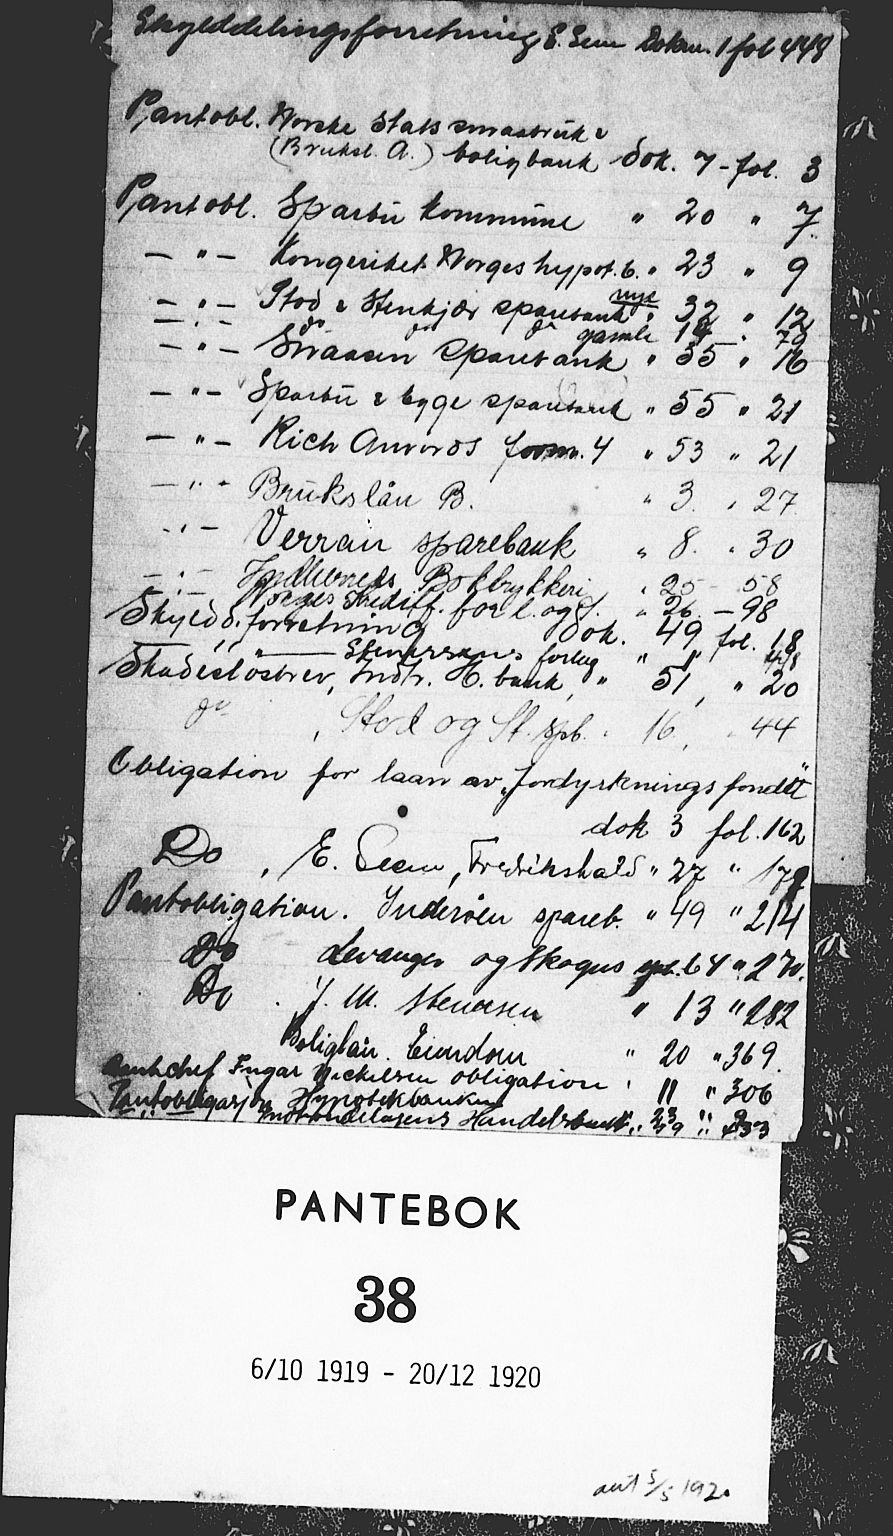 Skylddelingsforretning E. Sem Dokm. 1 fol 448
Pantobl. Norske Stats smaabruk &
(Bruksl. A.) boligbank dok. 7 - fol. 3
Pantobl. Sparbu kommune " 20 " 7
— " — Kongeriket Norges hypot.b. " 23 " 9
— " — Stod & Stenkjær sparebank nye " 32 " 12
— " — do do do gamle 14 " 79
— " — Snaasen sparebank " 35 " 16
— " — Sparbu & Egge sparebank " 55 " 21
— " — Rich Anvords form. 4 " 53 " 21
— " — Brukslån B. " 3. " 27
— " — Verran sparebank " 8. " 30
— " — Indherreds Boktrykkeri " 25 - 58
Norges Kreditf. for l. og s. " 26 — 98
Skyldd. forretning dok. 49 fol. 18
— " — Stenersens forlag " 1 " 418
Skadesløsbrev, Indtr. H. bank, " 51, " 20
do , Stod og St. spb. " 16, " 44
Obligation for laan av „fordyrkningsfondet"
dok 3 fol. 162
Do , E. Sem, Fredrikshald " 27 " 179
Pantobligation. Inderøen spareb. " 49 " 214
Do Levanger og Skogns spb. 64 " 270.
Do . J. M. Stenersen " 13 " 282
Boliglån. Eiendom " 20 " 369.
Fugar Mickelsen obligation " 11 " 306
Pantobligasjon Hypotekbanken " 23 " 9
Motbondelagens Handelsbank " 39 " 233
PANTEBOK
38
6/10 1919 - 20/12 1920
ant 5/5 192